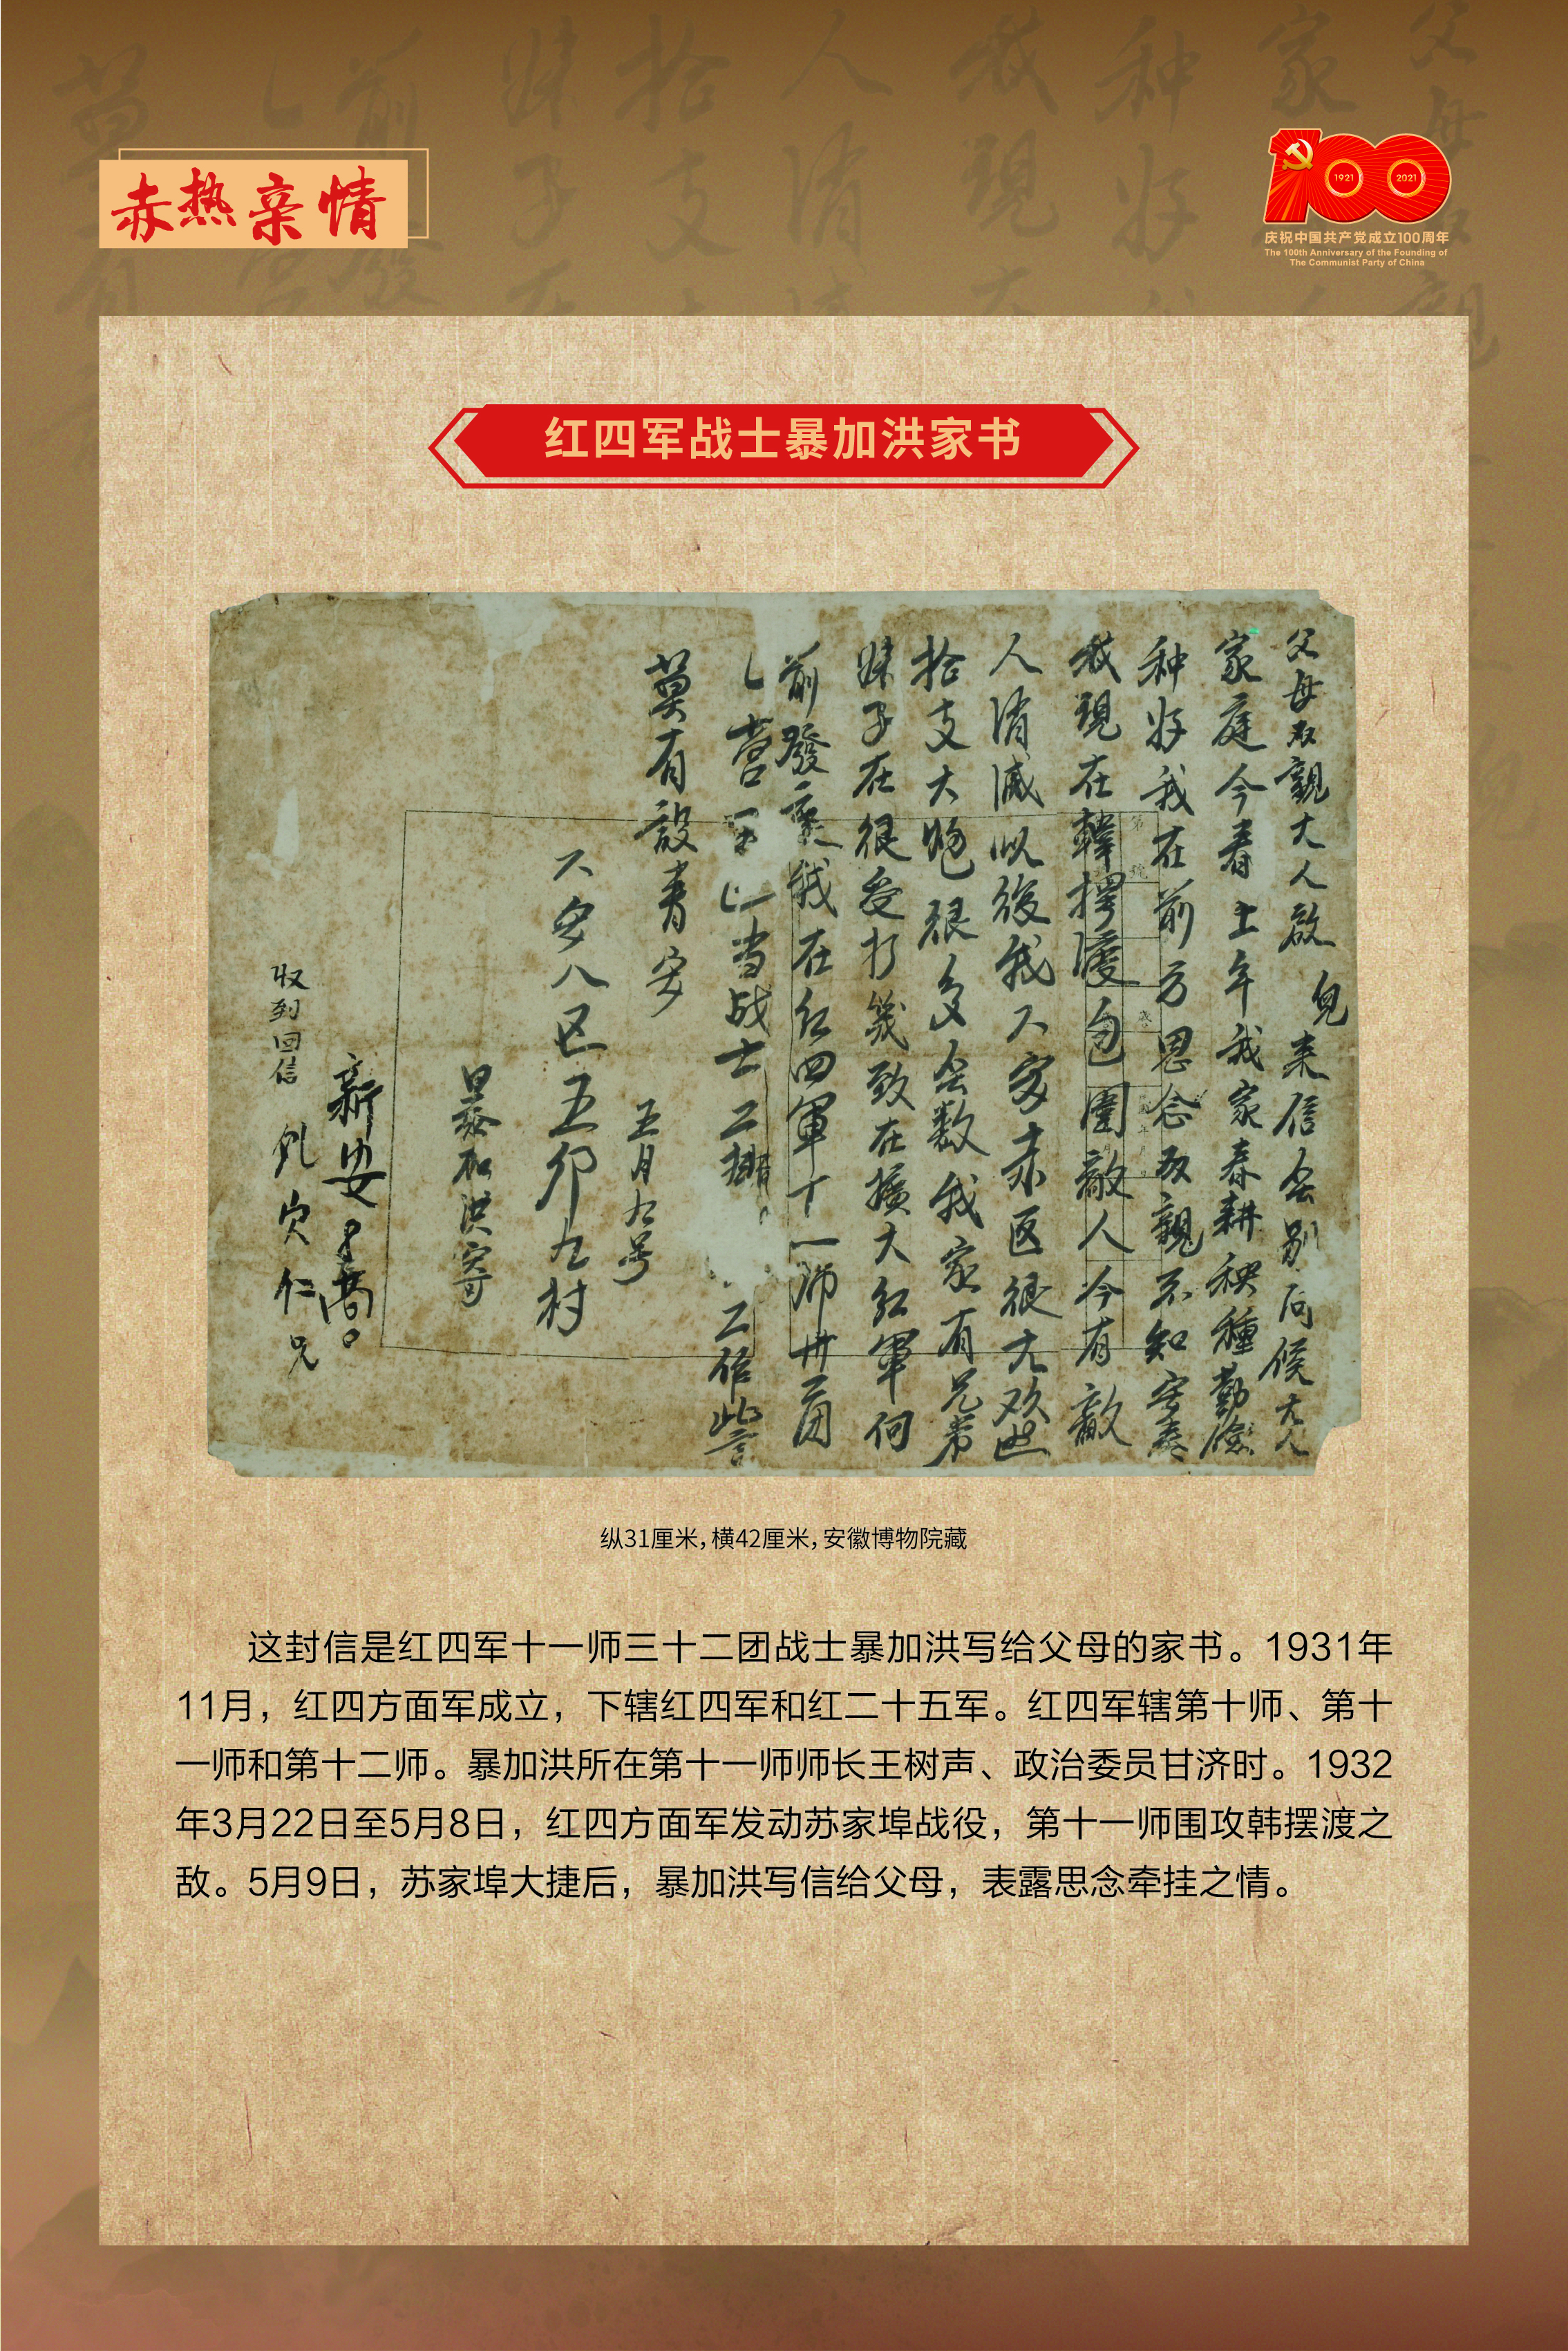 赤热亲情
100
1921
2021
庆祝中国共产党成立100周年
The 100th Anniversary of the Founding of
The Communist Party of China
红四军战士暴加洪家书
父母双親大人啟 兒来信会别问候大人
家庭今春上年我家春耕秧種勤儉
种好我在前方思念双親不知安泰
我現在韓擺渡包圍敵人今有敵
人消滅以後我六安赤区很大欢迎
拾支大炮很多会数我家有兄弟
妹子在很受打
致在擴大红軍何
前發 我在红四軍十一师卅二团
营 当战士二排 工作
莫有 安
五月九号
六安八区五卯九村
暴加洪寄
新安
收到回信
仁兄
纵31厘米，横42厘米，安徽博物院藏
这封信是红四军十一师三十二团战士暴加洪写给父母的家书。1931年
11月，红四方面军成立，下辖红四军和红二十五军。红四军辖第十师、第十
一师和第十二师。暴加洪所在第十一师师长王树声、政治委员甘济时。1932
年3月22日至5月8日，红四方面军发动苏家埠战役，第十一师围攻韩摆渡之
敌。5月9日，苏家埠大捷后，暴加洪写信给父母，表露思念牵挂之情。